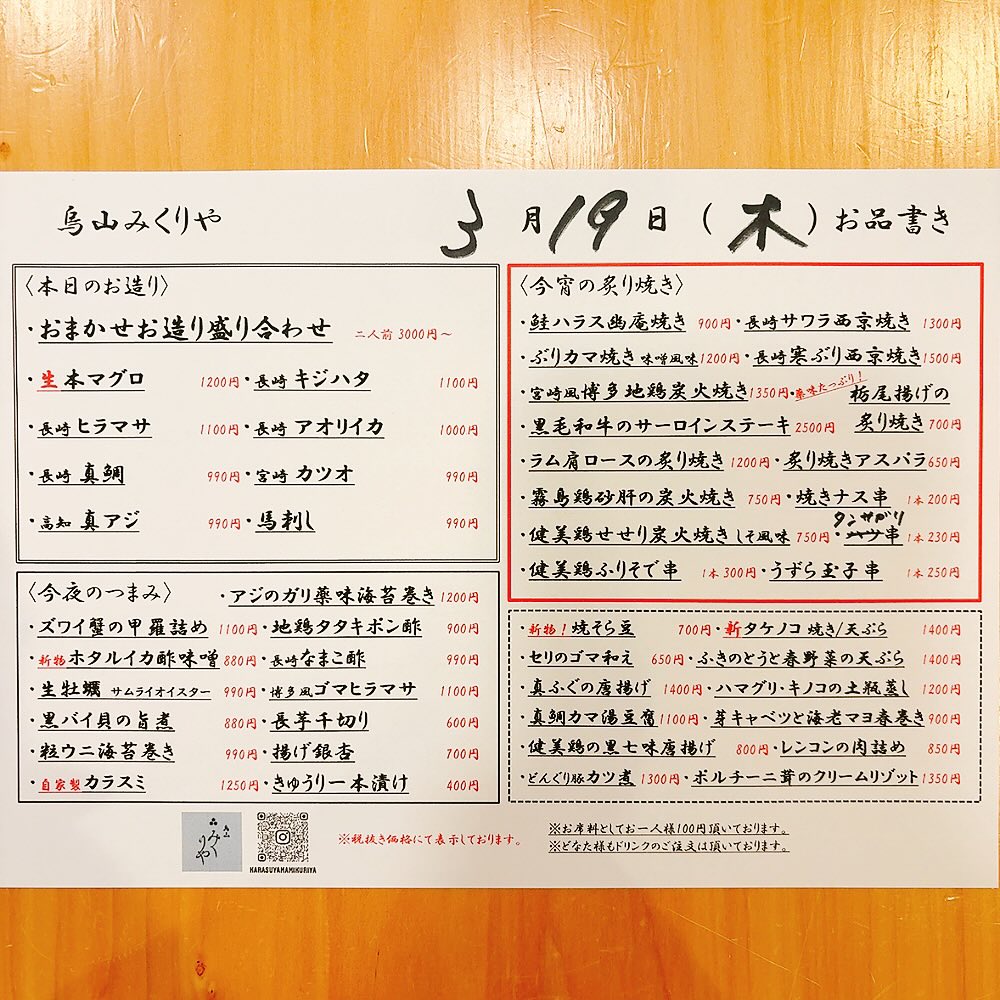 烏山みくりや
3月19日(木)お品書き
〈本日のお造り〉
・おまかせお造り盛り合わせ 二人前 3000円〜
・生本マグロ 1200円・長崎 キジハタ 1100円
・長崎 ヒラマサ 1100円・長崎 アオリイカ 1000円
・長崎 真鯛 990円・宮崎 カツオ 990円
・高知 真アジ 990円・馬刺し 990円
〈今夜のつまみ〉 ・アジのガリ薬味海苔巻き 1200円
・ズワイ蟹の甲羅詰め 1100円・地鶏タタキポン酢 900円
・新物ホタルイカ酢味噌 880円・長崎なまこ酢 990円
・生牡蠣 サムライオイスター 990円・博多風ゴマヒラマサ 1100円
・黒バイ貝の旨煮 880円・長芋千切り 600円
・粒ウニ海苔巻き 990円・揚げ銀杏 700円
・自家製カラスミ 1250円・きゅうり一本漬け 400円
〈今宵の炙り焼き〉
・鮭ハラス幽庵焼き 900円・長崎サワラ西京焼き 1300円
・ぶりカマ焼き 味噌風味1200円・長崎寒ぶり西京焼き1500円
・宮崎風博多地鶏炭火焼き1350円・薬味たっぷり!栃尾揚げの
・黒毛和牛のサーロインステーキ 2500円 炙り焼き 700円
・ラム肩ロースの炙り焼き 1200円・炙り焼きアスパラ650円
・霧島鶏砂肝の炭火焼き 750円・焼きナス串 1本200円
タンサガリ
・健美鶏せせり炭火焼き しそ風味 750円・ハツ串 1本230円
・健美鶏ふりそで串 1本300円・うずら玉子串 1本250円
・新物!焼そら豆 700円・新タケノコ 焼き/天ぷら 1400円
・セリのゴマ和え 650円・ふきのとうと春野菜の天ぷら 1400円
・真ふぐの唐揚げ 1400円・ハマグリ・キノコの土瓶蒸し 1200円
・真鯛カマ湯豆腐1100円・芽キャベツと海老マヨ春巻き900円
・健美鶏の黒七味唐揚げ 800円・レンコンの肉詰め 850円
・どんぐり豚カツ煮 1300円・ポルチーニ茸のクリームリゾット1350円
烏山
みくりや
KARASUYAMAMIKURIYA
※税抜き価格にて表示しております。
※お席料としてお一人様100円頂いております。
※どなた様もドリンクのご注文は頂いております。